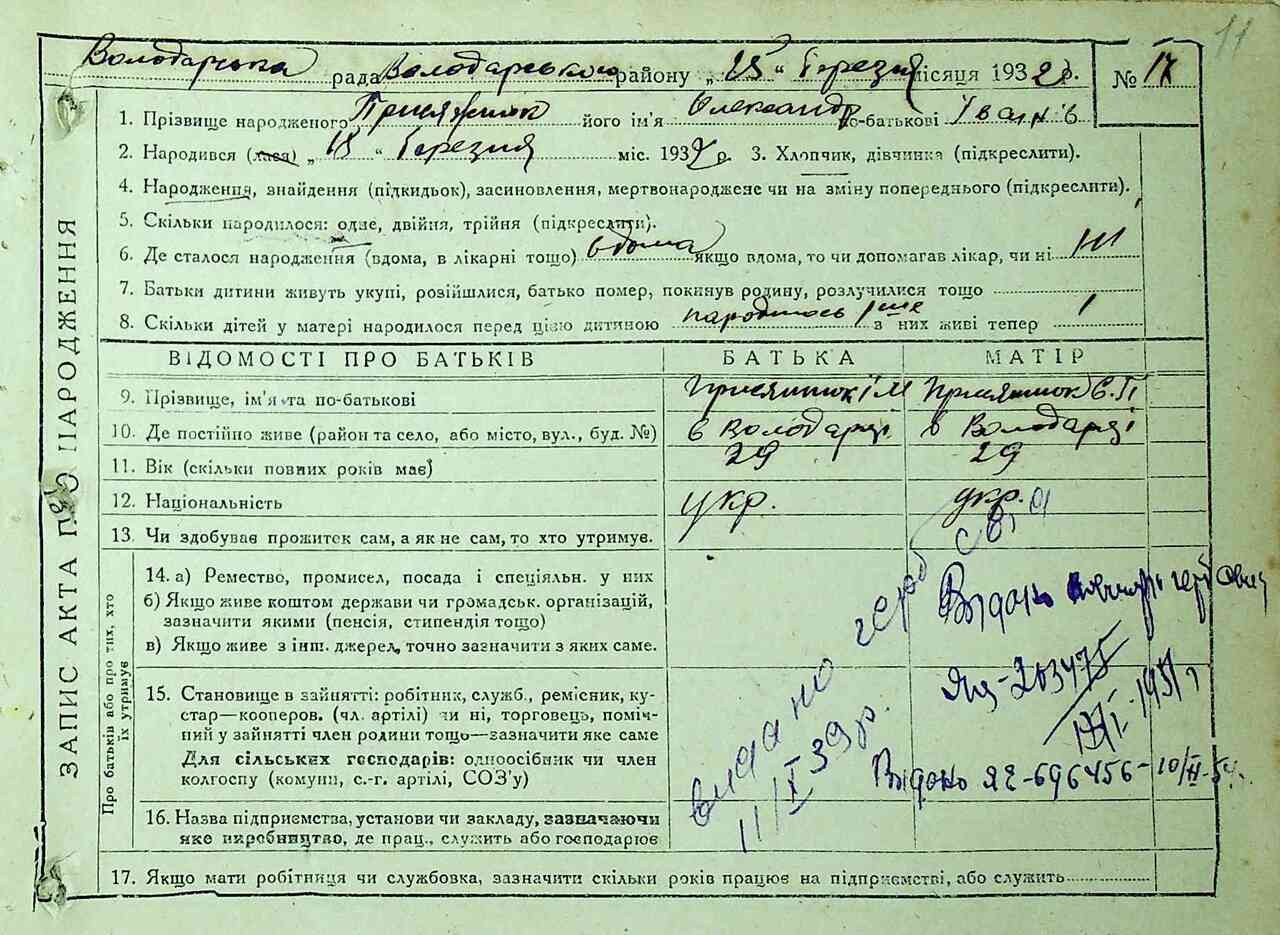 11
Володарська рада Володарського району „ “ березня місяця 1932 р. № 17
1. Прізвище народженого Присяжнюк його ім'я Олександр по-батькові Іванів
2. Народився (лася) „ “ березня міс. 193 р. 3. Хлопчик, дівчинка (підкреслити).
4. Народження, знайдення (підкидьок), засиновлення, мертвонароджене чи на зміну попереднього (підкреслити).
5. Скільки народилося: одне, двійня, трійня (підкреслити).
6. Де сталося народження (вдома, в лікарні тощо) вдома якщо вдома, то чи допомагав лікар, чи ні ні
7. Батьки дитини живуть укупі, розійшлися, батько помер, покинув родину, розлучилися тощо
8. Скільки дітей у матері народилося перед цією дитиною народилось з них живі тепер 1
ВІДОМОСТІ ПРО БАТЬКІВ БАТЬКА МАТІР
9. Прізвище, ім'я та по-батькові Присяжнюк І М Присяжнюк Є. П
10. Де постійно живе (район та село, або місто, вул., буд. №) в Володарці в Володарці
11. Вік (скільки повних років має) 29 29
12. Національність укр. укр.
13. Чи здобуває прожиток сам, а як не сам, то хто утримує.
14. а) Ремество, промисел, посада і спеціяльн. у них
б) Якщо живе коштом держави чи громадськ. організацій,
зазначити якими (пенсія, стипендія тощо)
в) Якщо живе з інш. джерел, точно зазначити з яких саме.
15. Становище в зайнятті: робітник, служб., ремісник, ку-
стар—кооперов. (чл. артілі) чи ні, торговець, поміч-
ний у зайнятті член родини тощо—зазначити яке саме
Для сільських господарів: одноосібник чи член
колгоспу (комуни, с.-г. артілі, СОЗ'у)
16. Назва підприємства, установи чи закладу, зазначаючи
яке виробництво, де прац., служить або господарює
17. Якщо мати робітниця чи службовка, зазначити скільки років працює на підприємстві, або служить
ЗАПИС АКТА ПРО НАРОДЖЕННЯ
Про батьків або про тих, хто
їх утримує
видано герб
11/X 39 р.
Видано
203475
Видано ЯЕ-696456-10/II-54.